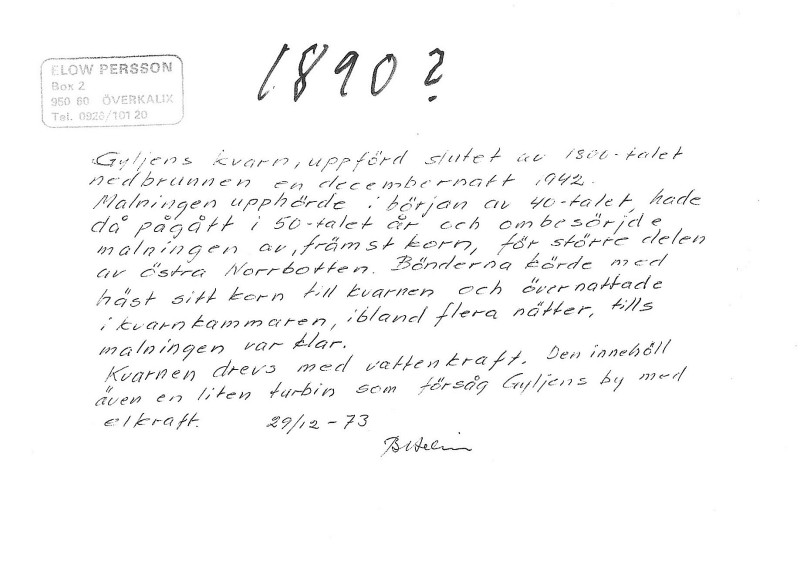 ELOW PERSSON
Box 2
950 60 ÖVERKALIX
Tel. 0926/101 20
1890?
Gyljens kvarn, uppförd slutet av 1800-talet
nedbrunnen en decembernatt 1942.
Malningen upphörde i början av 40-talet, hade
då pågått i 50-talet år och ombesörjde
malningen av, främst korn, för större delen
av östra Norrbotten. Bönderna körde med
häst sitt korn till kvarnen och övernattade
i kvarnkammaren, ibland flera nätter, tills
malningen var klar.
Kvarnen drevs med vattenkraft. Den innehöll
även en liten turbin som försåg Gyljens by med
elkraft. 29/12-73